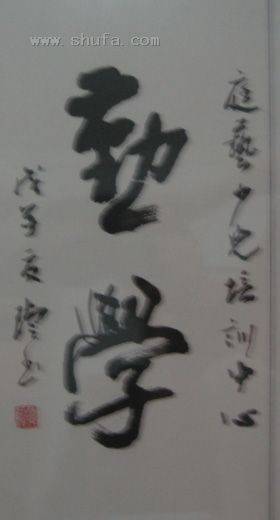 www.shufa.com
庭藝少儿培訓中心
勤學
戊子夏书